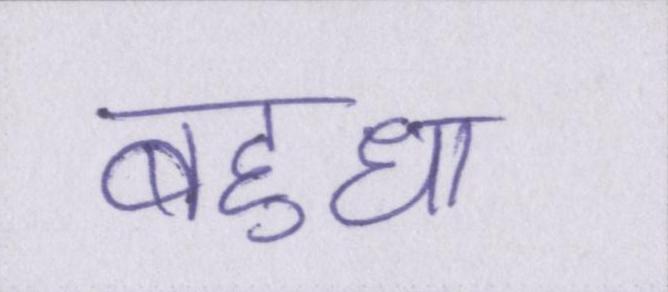 बहुधा